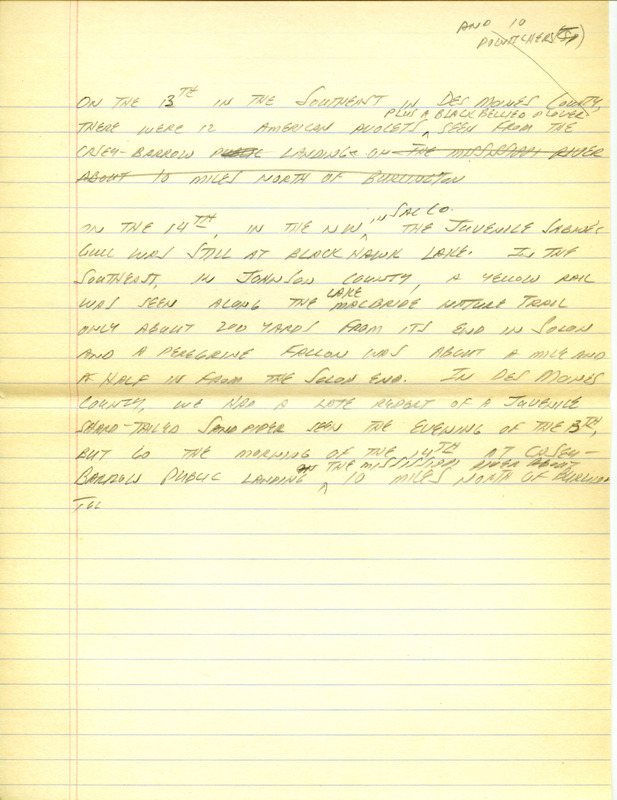 AND 10
DOWITCHERS (SP)
ON THE 13TH IN THE SOUTHEAST IN DES MOINES COUNTY,
PLUS A BLACK BELLIED PLOVER
THERE WERE 12 AMERICAN AVOCETS ^ SEEN FROM THE
CASEY-BARROW PUBLIC LANDING ON THE MISSISSIPPI RIVER
ABOUT 10 MILES NORTH OF BURLINGTON
IN SAC CO.
ON THE 14TH, IN THE NW ^ THE JUVENILE SABINE'S
GULL WAS STILL AT BLACK HAWK LAKE. IN THE
SOUTHEAST, IN JOHNSON COUNTY, A YELLOW RAIL
LAKE
WAS SEEN ALONG THE MACBRIDE NATURE TRAIL
ONLY ABOUT 200 YARDS FROM ITS END IN SOLON
AND A PEREGRINE FALCON WAS ABOUT A MILE AND
A HALF IN FROM THE SOLON END. IN DES MOINES
COUNTY, WE HAD A LATE REPORT OF A JUVENILE
SHARP-TAILED SANDPIPER SEEN THE EVENING OF THE 13TH,
BUT GO THE MORNING OF THE 14TH AT CASEY-
ON THE MISSISSIPPI RIVER ABOUT
BARROW PUBLIC LANDING ^ 10 MILES NORTH OF BURLINGTON